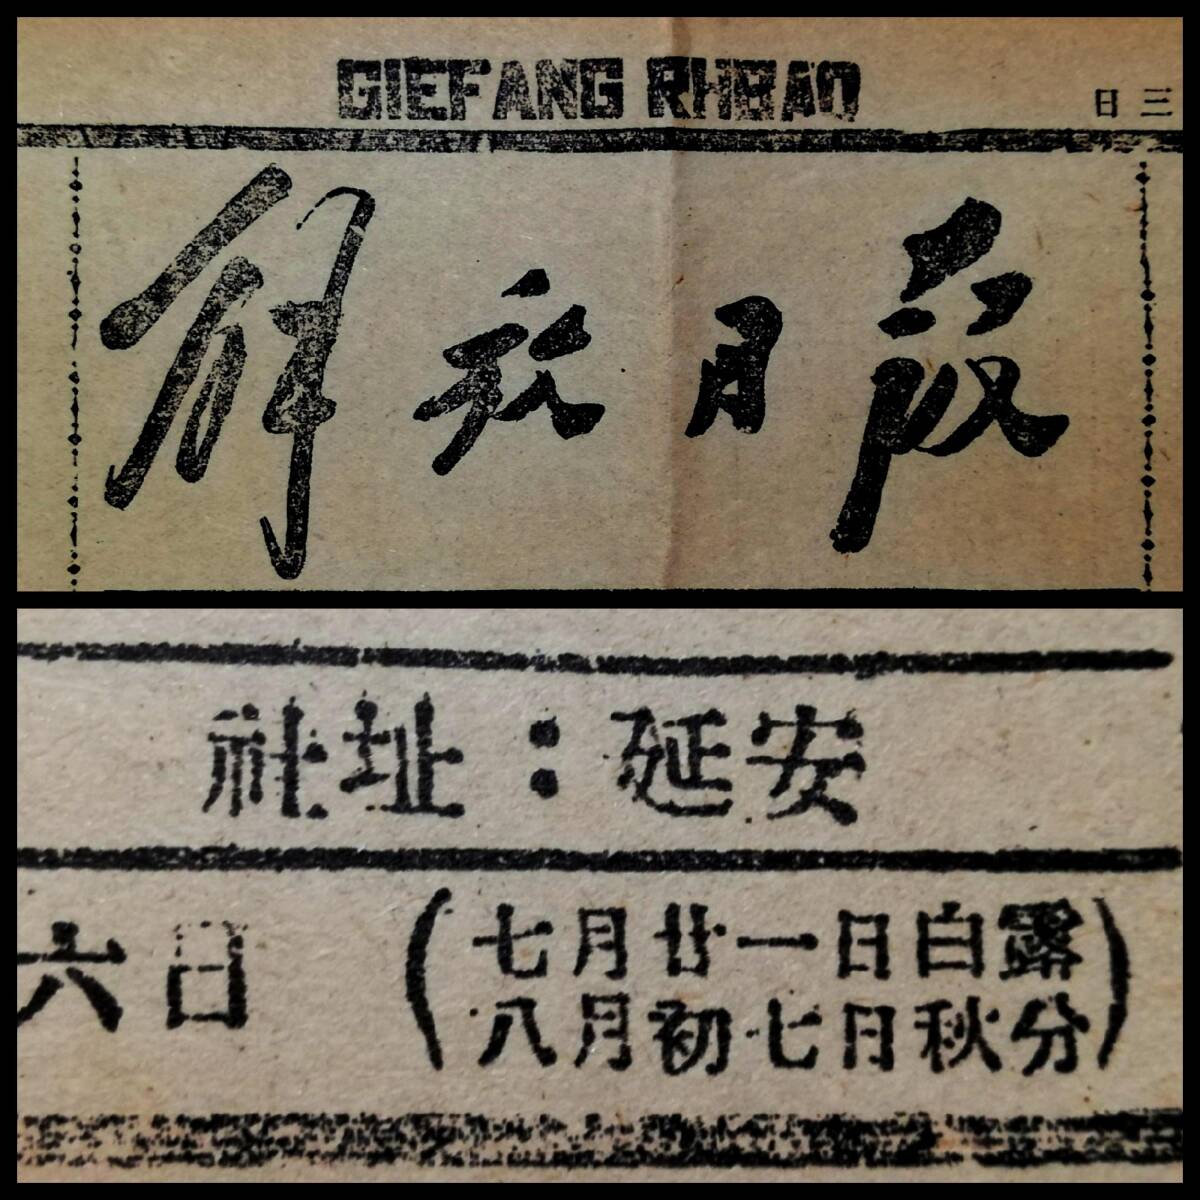 GIEFANG RHBAO
三日
解放日报
社址：延安
六日
七月廿一日白露
八月初七日秋分